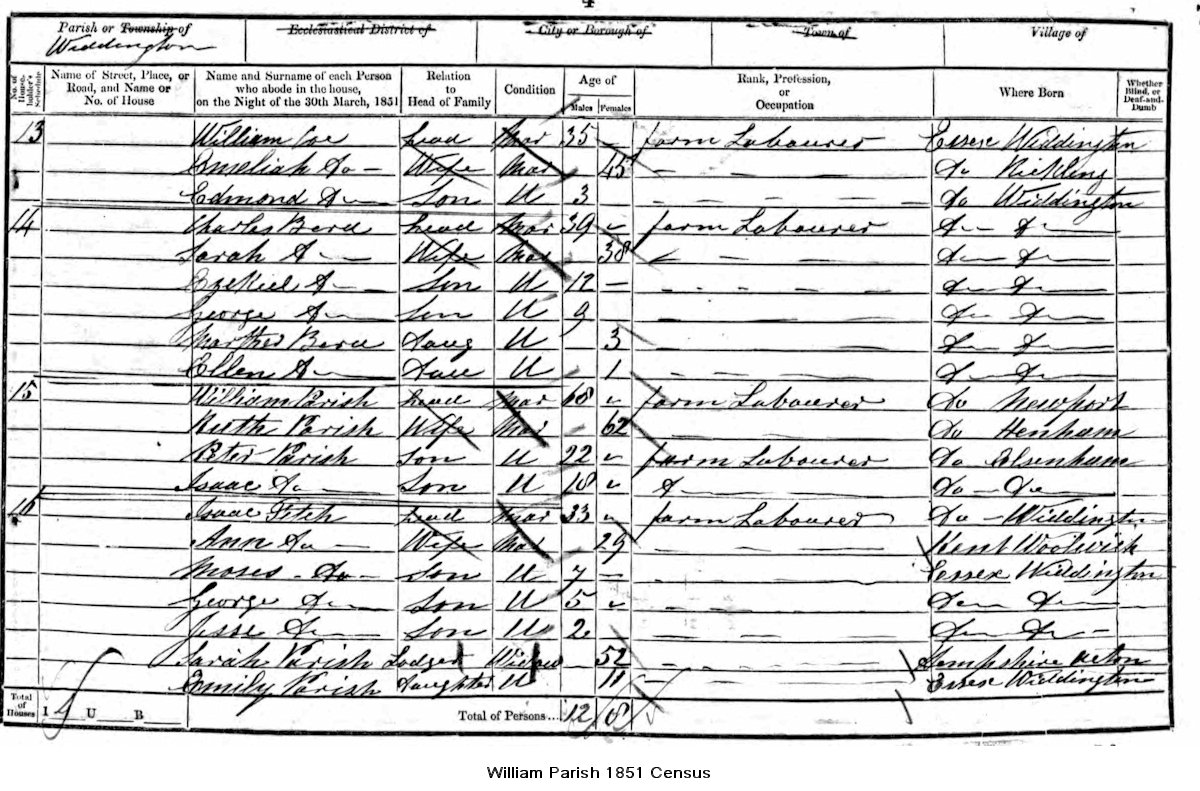 4
Parish or Township of Ecclesiastical District of City or Borough of Town of Village of
Widdington
No. of House-holder's Schedule Name of Street, Place, or Road, and Name or No. of House Name and Surname of each Person who abode in the house, on the Night of the 30th March, 1851 Relation to Head of Family Condition Age of Males Females Rank, Profession, or Occupation Where Born Whether Blind, or Deaf-and-Dumb
13 William Coe head Mar 35 farm Labourer Essex Widdington
Do Wife Mar 45 Do Rickling
Edmond Do Son U 3 Do Widdington
14 Charles head Mar 39 farm Labourer Do Do
Sarah Do Wife Mar 38 Do Do
Ezekiel Do Son U 12 Do Do
George Do Son U 9 Do Do
Daug U 3 Do Do
Ellen Do U 1 Do Do
15 William Parish head Mar 68 farm Labourer Do Newport
Ruth Parish Wife Mar 62 Do Henham
Peter Parish Son U 22 farm Labourer Do Elsenham
Isaac Do Son U 18 Do Do Do
16 Isaac Fitch head Mar 33 farm Labourer Do Widdington
Ann Do Wife Mar 29 Kent Woolwich
Moses Do Son U 7 Essex Widdington
George Do Son U 5 Do Do
Jesse Do Son U 2 Do Do
Sarah Parish Lodger Widow 52
Emily Parish Daughter U 11 Essex Widdington
Total of Houses I 4 U B Total of Persons... 12 8
William Parish 1851 Census